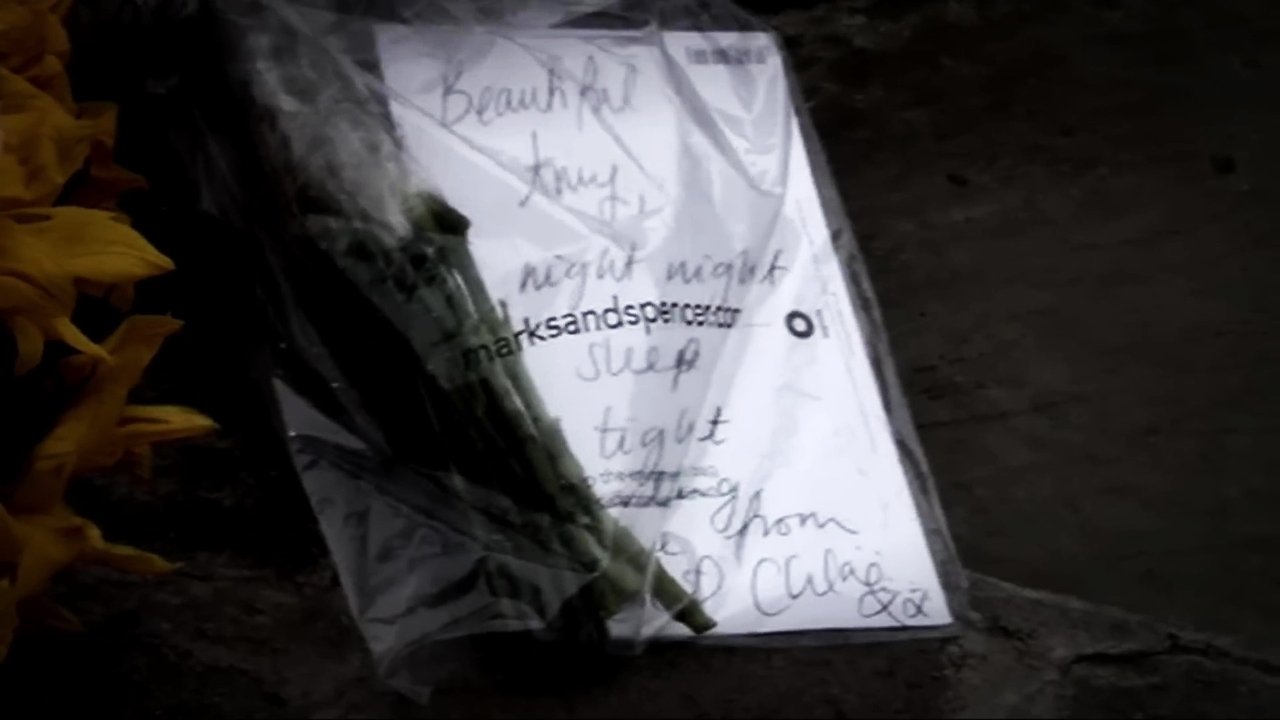 Beautiful
Amy,
night night
marksandspencer.com
sleep
tight
from
Chloe